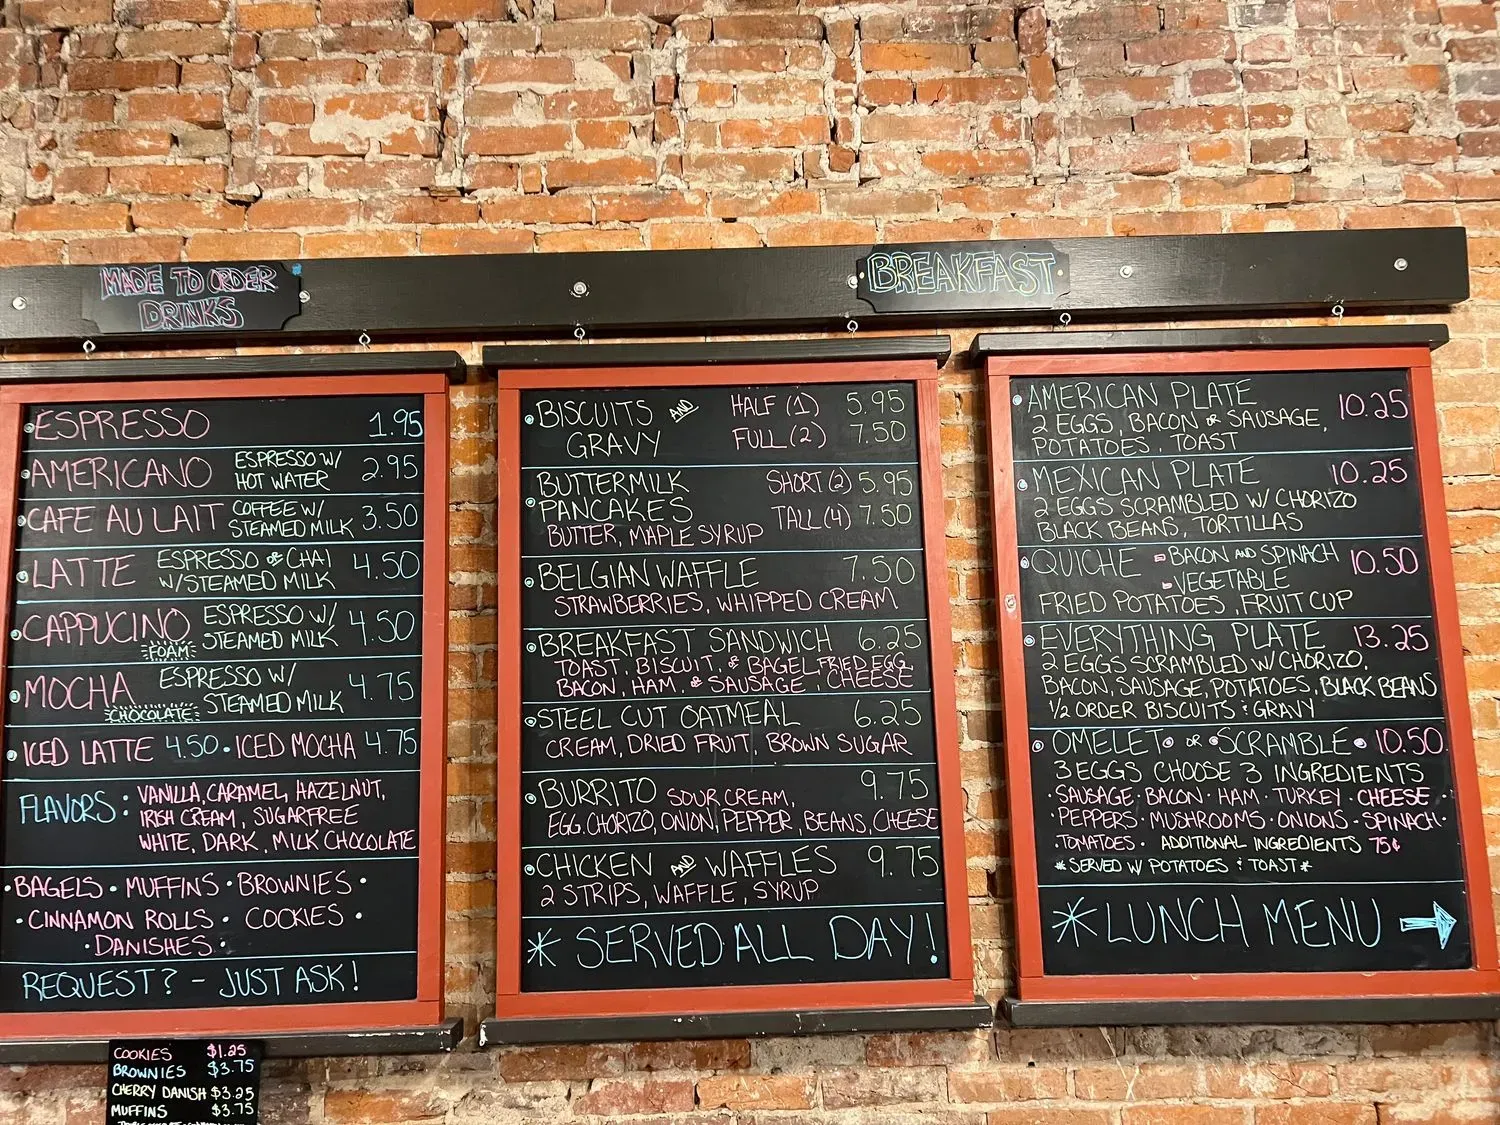 MADE TO ORDER
DRINKS
BREAKFAST
ESPRESSO 1.95
AMERICANO ESPRESSO W/ HOT WATER 2.95
CAFE AU LAIT COFFEE W/ STEAMED MILK 3.50
LATTE ESPRESSO OR CHAI W/STEAMED MILK 4.50
CAPPUCINO FOAM ESPRESSO W/ STEAMED MILK 4.50
MOCHA CHOCOLATE ESPRESSO W/ STEAMED MILK 4.75
ICED LATTE 4.50 • ICED MOCHA 4.75
FLAVORS: VANILLA, CARAMEL, HAZELNUT,
IRISH CREAM, SUGARFREE
WHITE, DARK, MILK CHOCOLATE
• BAGELS • MUFFINS • BROWNIES •
• CINNAMON ROLLS • COOKIES •
• DANISHES •
REQUEST? - JUST ASK!
COOKIES $1.25
BROWNIES $3.75
CHERRY DANISH $3.25
MUFFINS $3.75
BISCUITS AND HALF (1) 5.95
GRAVY FULL (2) 7.50
BUTTERMILK SHORT (2) 5.95
PANCAKES TALL (4) 7.50
BUTTER, MAPLE SYRUP
BELGIAN WAFFLE 7.50
STRAWBERRIES, WHIPPED CREAM
BREAKFAST SANDWICH 6.25
TOAST, BISCUIT, OR BAGEL, FRIED EGG
BACON, HAM, OR SAUSAGE, CHEESE
STEEL CUT OATMEAL 6.25
CREAM, DRIED FRUIT, BROWN SUGAR
BURRITO SOUR CREAM, 9.75
EGG, CHORIZO, ONION, PEPPER, BEANS, CHEESE
CHICKEN AND WAFFLES 9.75
2 STRIPS, WAFFLE, SYRUP
* SERVED ALL DAY!
AMERICAN PLATE 10.25
2 EGGS, BACON OR SAUSAGE,
POTATOES, TOAST
MEXICAN PLATE 10.25
2 EGGS SCRAMBLED W/ CHORIZO
BLACK BEANS, TORTILLAS
QUICHE - BACON AND SPINACH 10.50
- VEGETABLE
FRIED POTATOES, FRUIT CUP
EVERYTHING PLATE 13.25
2 EGGS SCRAMBLED W/ CHORIZO,
BACON, SAUSAGE, POTATOES, BLACK BEANS
1/2 ORDER BISCUITS & GRAVY
OMELET • OR • SCRAMBLE • 10.50
3 EGGS CHOOSE 3 INGREDIENTS
• SAUSAGE • BACON • HAM • TURKEY • CHEESE •
• PEPPERS • MUSHROOMS • ONIONS • SPINACH •
• TOMATOES • ADDITIONAL INGREDIENTS 75¢
* SERVED W/ POTATOES & TOAST *
* LUNCH MENU →